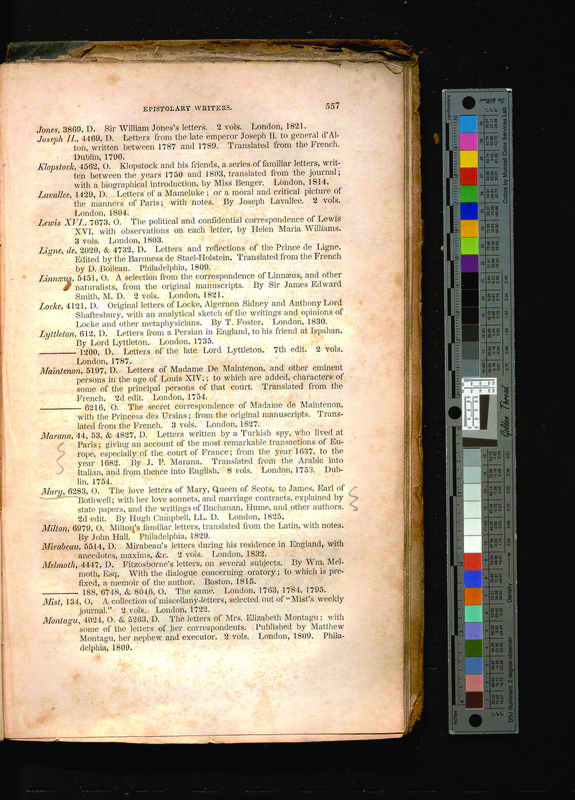 EPISTOLARY WRITERS. 557
Jones, 3869, D. Sir William Jones's letters. 2 vols. London, 1821.
Joseph II., 4469, D. Letters from the late emperor Joseph II. to general d'Al-
ton, written between 1787 and 1789. Translated from the French.
Dublin, 1790.
Klopstock, 4562, O. Klopstock and his friends, a series of familiar letters, writ-
ten between the years 1750 and 1803, translated from the journal;
with a biographical introduction, by Miss Benger. London, 1814.
Lavallee, 1429, D. Letters of a Mameluke; or a moral and critical picture of
the manners of Paris; with notes. By Joseph Lavallee. 2 vols.
London, 1804.
Lewis XVI., 7673, O. The political and confidential correspondence of Lewis
XVI. with observations on each letter, by Helen Maria Williams.
3 vols. London, 1803.
Ligne, de, 2020, & 4732, D. Letters and reflections of the Prince de Ligne.
Edited by the Baroness de Stael-Holstein. Translated from the French
by D. Boileau. Philadelphia, 1809.
Linnæus, 5451, O. A selection from the correspondence of Linnæus, and other
naturalists, from the original manuscripts. By Sir James Edward
Smith, M. D. 2 vols. London, 1821.
Locke, 4121, D. Original letters of Locke, Algernon Sidney and Anthony Lord
Shaftesbury, with an analytical sketch of the writings and opinions of
Locke and other metaphysicians. By T. Foster. London, 1830.
Lyttleton, 612, D. Letters from a Persian in England, to his friend at Ispahan.
By Lord Lyttleton. London, 1735.
——— 1200, D. Letters of the late Lord Lyttleton. 7th edit. 2 vols.
London, 1787.
Maintenon, 5197, D. Letters of Madame De Maintenon, and other eminent
persons in the age of Louis XIV.; to which are added, characters of
some of the principal persons of that court. Translated from the
French. 2d edit. London, 1754.
——— 6216, O. The secret correspondence of Madame de Maintenon,
with the Princess des Ursins; from the original manuscripts. Trans-
lated from the French. 3 vols. London, 1827.
Marana, 44, 53, & 4827, D. Letters written by a Turkish spy, who lived at
Paris; giving an account of the most remarkable transactions of Eu-
rope, especially of the court of France; from the year 1637, to the
year 1682. By J. P. Marana. Translated from the Arabic into
Italian, and from thence into English. 8 vols. London, 1753. Dub-
lin, 1754.
Mary, 6283, O. The love letters of Mary, Queen of Scots, to James, Earl of
Bothwell; with her love sonnets, and marriage contracts, explained by
state papers, and the writings of Buchanan, Hume, and other authors.
2d edit. By Hugh Campbell, LL. D. London, 1825.
Milton, 6979, O. Milton's familiar letters, translated from the Latin, with notes.
By John Hall. Philadelphia, 1829.
Mirabeau, 5514, D. Mirabeau's letters during his residence in England, with
anecdotes, maxims, &c. 2 vols. London, 1832.
Melmoth, 4447, D. Fitzosborne's letters, on several subjects. By Wm. Mel-
moth, Esq. With the dialogue concerning oratory; to which is pre-
fixed, a memoir of the author. Boston, 1815.
——— 188, 6748, & 8046, O. The same. London, 1763, 1784, 1795.
Mist, 134, O. A collection of miscellany-letters, selected out of "Mist's weekly
journal." 2 vols. London, 1722.
Montagu, 4024, O. & 5263, D. The letters of Mrs. Elizabeth Montagu; with
some of the letters of her correspondents. Published by Matthew
Montagu, her nephew and executor. 2 vols. London, 1809. Phila-
delphia, 1809.
Golden Thread
Colors by Munsell Color Services Lab
Density
D50 Illuminant, 2 degree observer